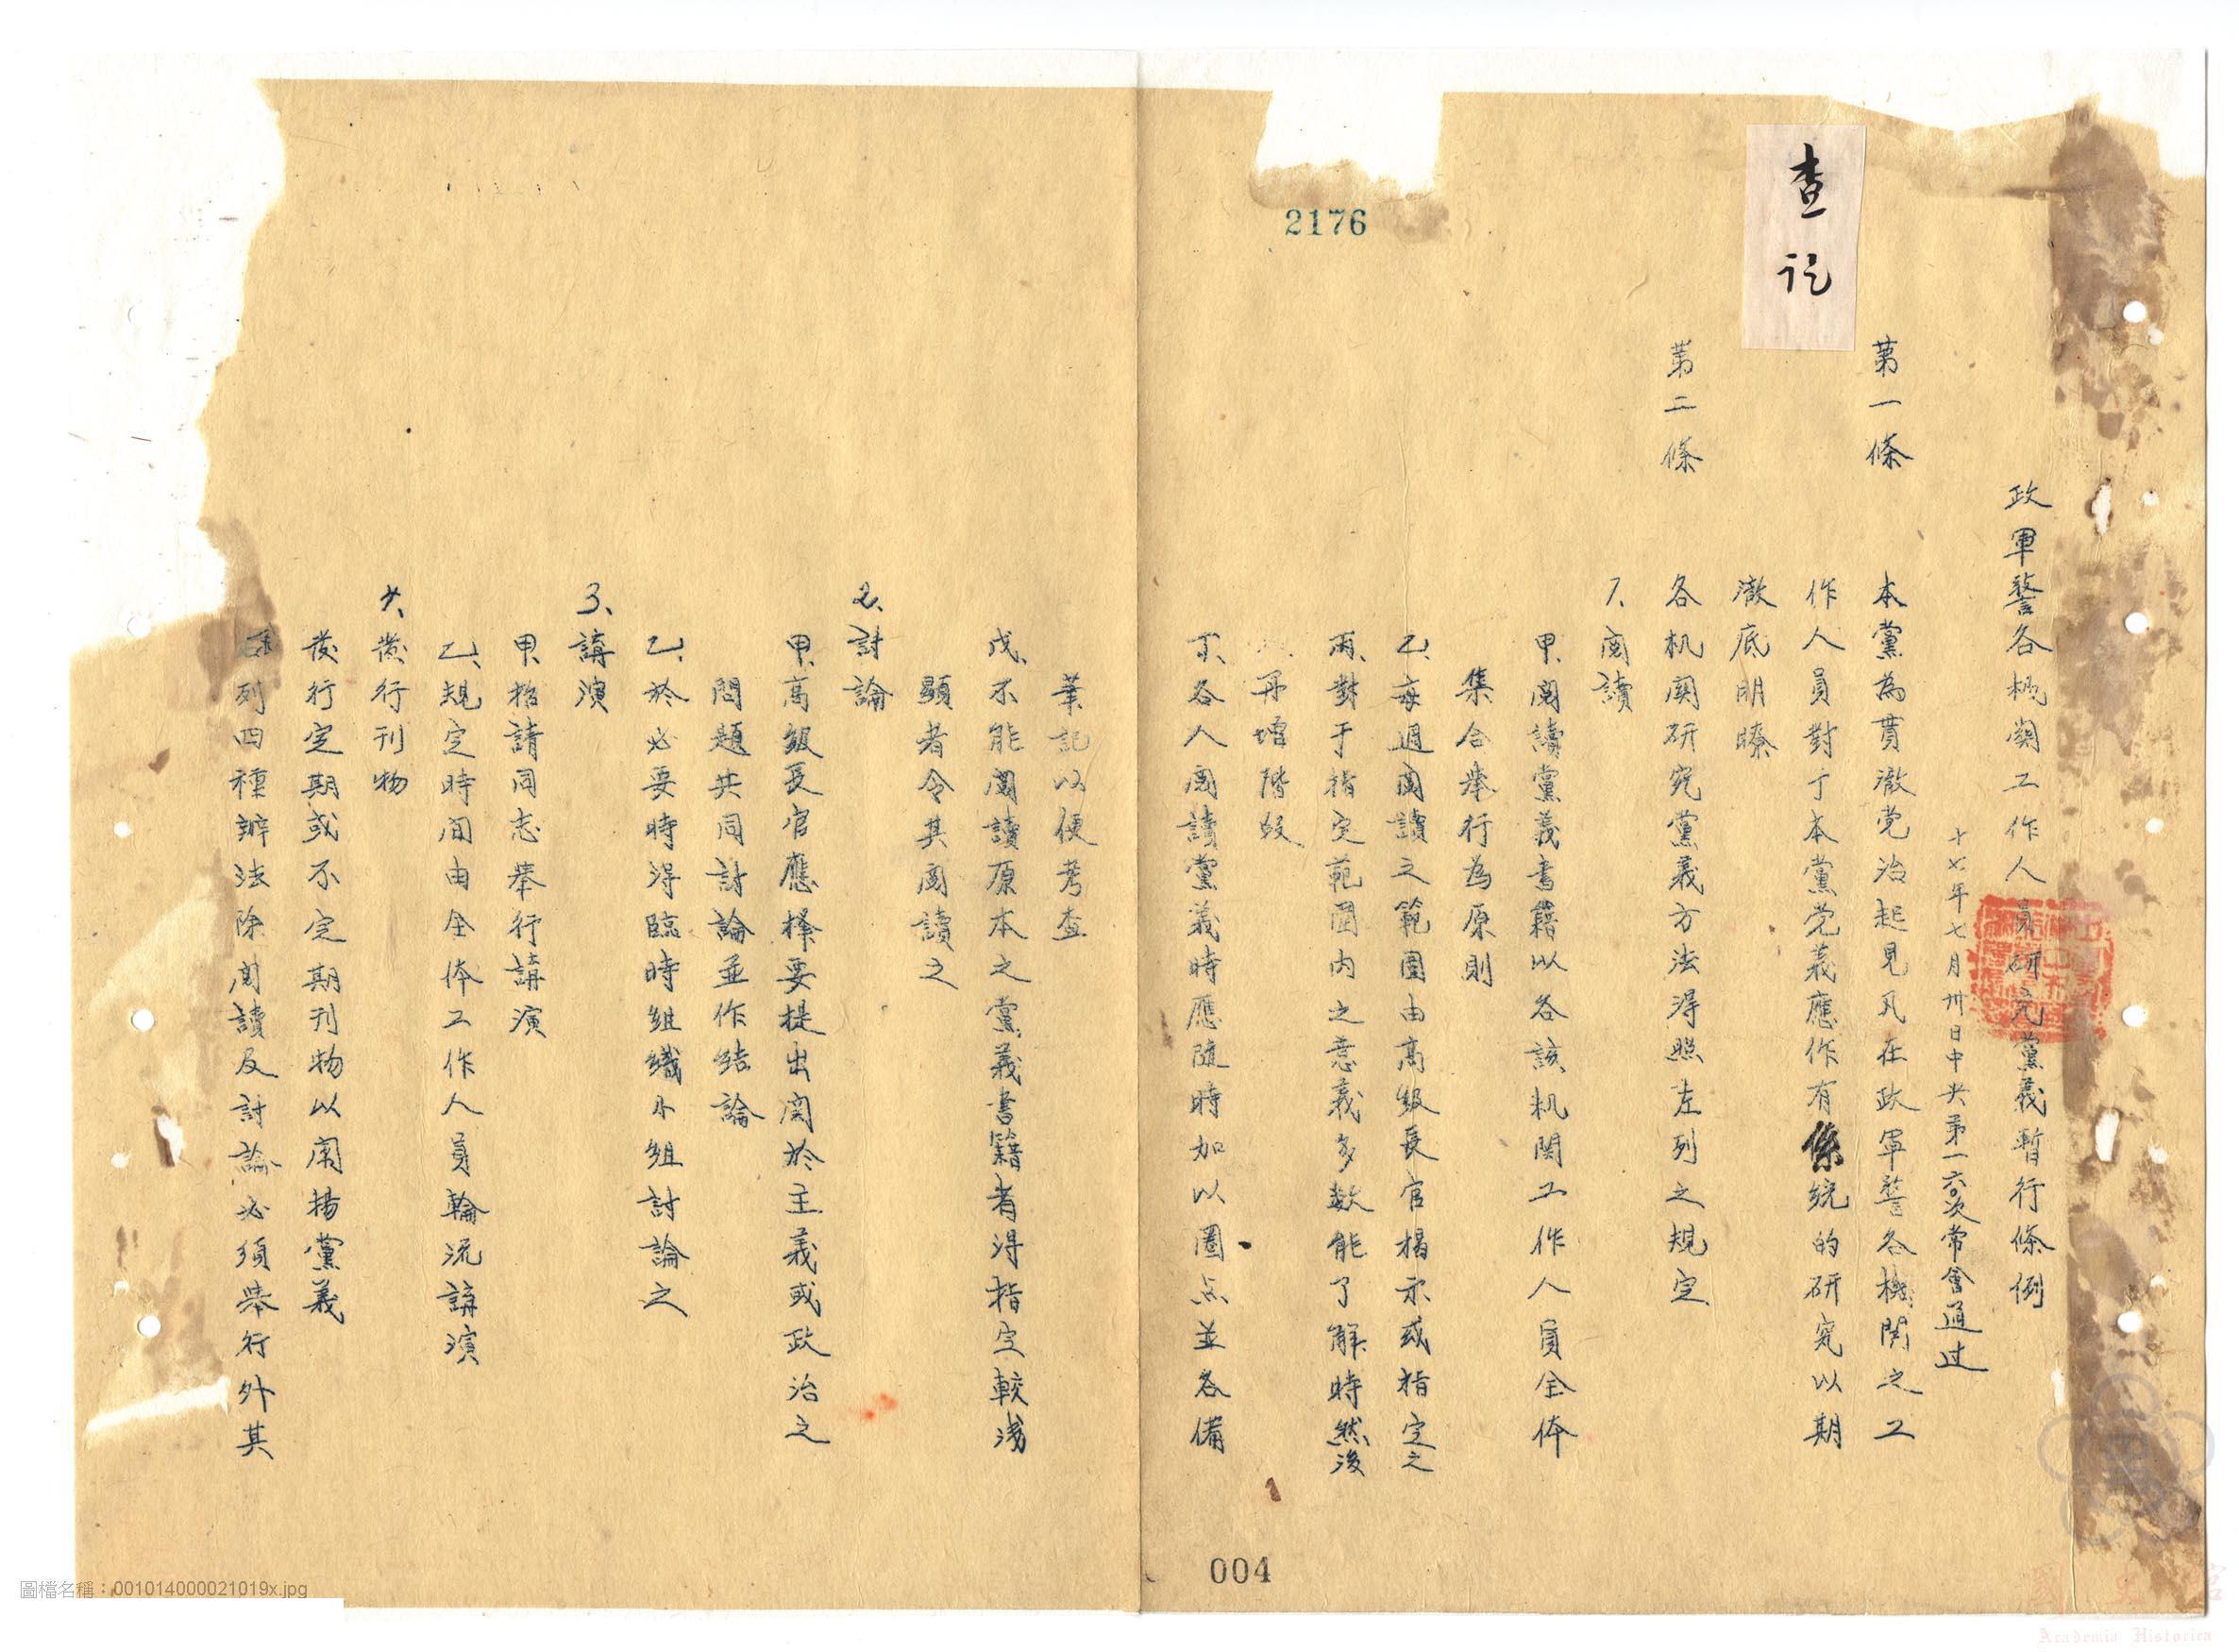 查訖
政軍警各機関工作人員研究黨義暫行條例
十七年七月卅日中央第一六〇次常會通过
第一條
本黨為貫澈党治起見凡在政軍警各機関之工
作人員對于本黨党義應作有係統的研究以期
澈底明瞭
第二條
各机関研究黨義方法得照左列之規定
1、閱讀
甲、閱讀黨義書籍以各該机関工作人員全体
集合舉行為原則
乙、每週閱讀之範圍由高級長官揭示或指定之
丙、對于指定範圍内之意義多数能了解時然後
再增階段
丁、各人閱讀黨義時應隨時加以圈点並各備
2176
004
筆記以便考查
戊、不能閱讀原本之黨義書籍者得指定較淺
顯者令其閱讀之
2、討論
甲、高級長官應擇要提出関於主義或政治之
問題共同討論並作結論
乙、於必要時得臨時組織小組討論之
3、講演
甲、招請同志舉行講演
乙、規定時間由全体工作人員輪流講演
4、發行刊物
發行定期或不定期刊物以闡揚黨義
列四種辦法除閱讀及討論必須舉行外其
圖檔名稱：001014000021019x.jpg
Academia Historica